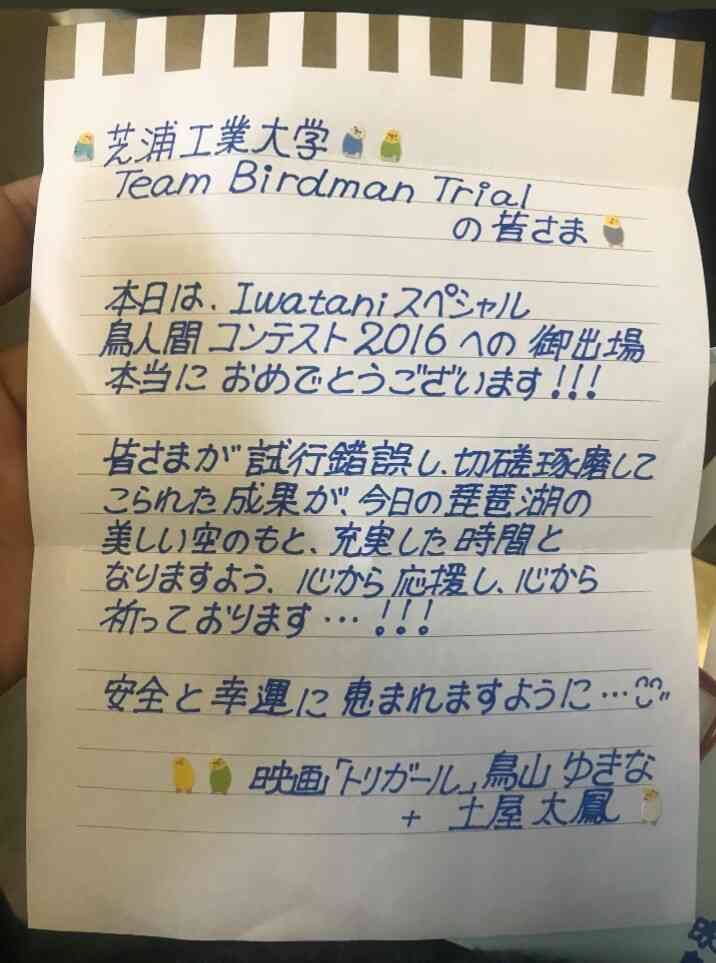 芝浦工業大学
Team Birdman Trial
の皆さま
本日は、Iwataniスペシャル
鳥人間コンテスト2016への御出場
本当におめでとうございます!!!
皆さまが試行錯誤し、切磋琢磨して
こられた成果が、今日の琵琶湖の
美しい空のもと、充実した時間と
なりますよう、心から応援し、心から
祈っております…!!!
安全と幸運に恵まれますように…
映画「トリガール」鳥山ゆきな
+ 土屋太鳳
映